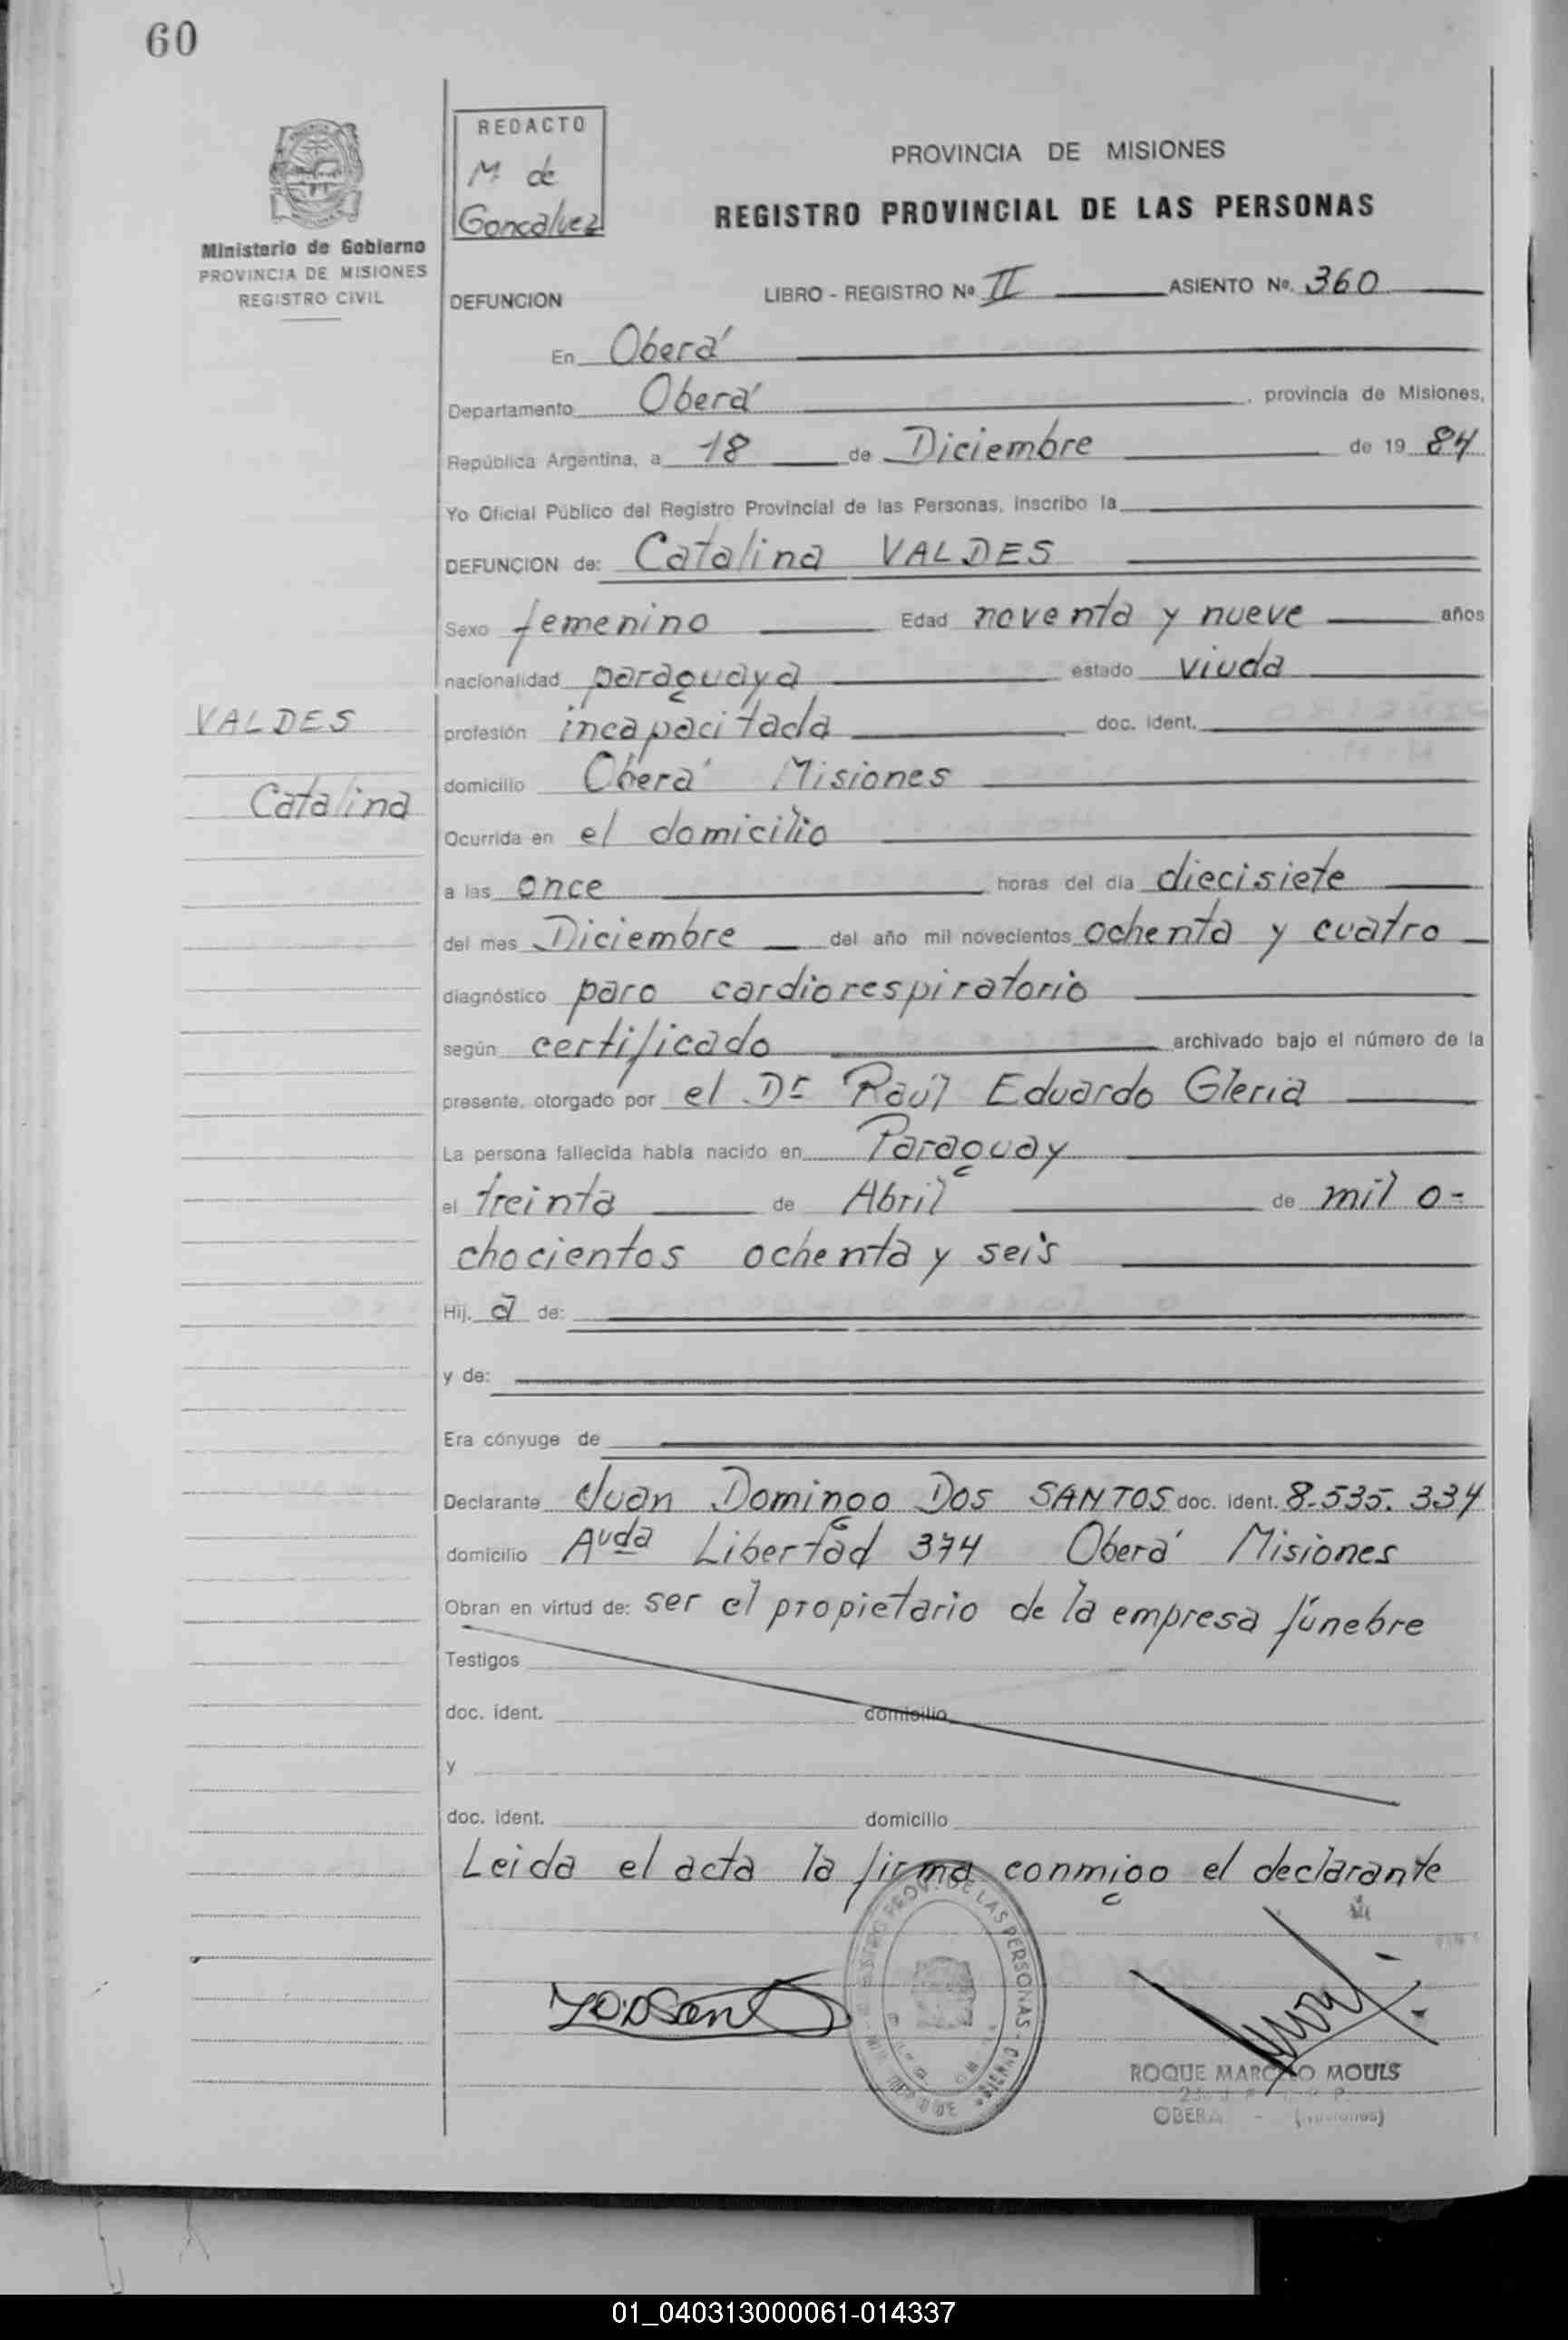 60
REDACTO
M de
Goncalvez
Ministerio de Gobierno
PROVINCIA DE MISIONES
REGISTRO CIVIL
PROVINCIA DE MISIONES
REGISTRO PROVINCIAL DE LAS PERSONAS
DEFUNCION LIBRO - REGISTRO Nº II ASIENTO Nº. 360
En Oberá
Departamento Oberá, provincia de Misiones,
República Argentina, a 18 de Diciembre de 19 84
Yo Oficial Público del Registro Provincial de las Personas, inscribo la
DEFUNCION de: Catalina VALDES
Sexo femenino Edad noventa y nueve años
nacionalidad paraguaya estado viuda
VALDES
Catalina
profesión incapacitada doc. ident.
domicilio Oberá Misiones
Ocurrida en el domicilio
a las once horas del día diecisiete
del mes Diciembre del año mil novecientos ochenta y cuatro
diagnóstico paro cardiorespiratorio
según certificado archivado bajo el número de la
presente, otorgado por el Dr Raúl Eduardo Gleria
La persona fallecida había nacido en Paraguay
el treinta de Abril de mil o=
chocientos ochenta y seis
Hij. a de:
y de:
Era cónyuge de
Declarante Juan Domingo Dos SANTOS doc. ident. 8.535.334
domicilio Avda Libertad 374 Oberá Misiones
Obran en virtud de: ser el propietario de la empresa fúnebre
Testigos
doc. ident. domicilio
y
doc. ident. domicilio
Leida el acta la firma conmigo el declarante
DE LAS PERSONAS
ROQUE MOULS
OBERA - (Misiones)
01_040313000061-014337